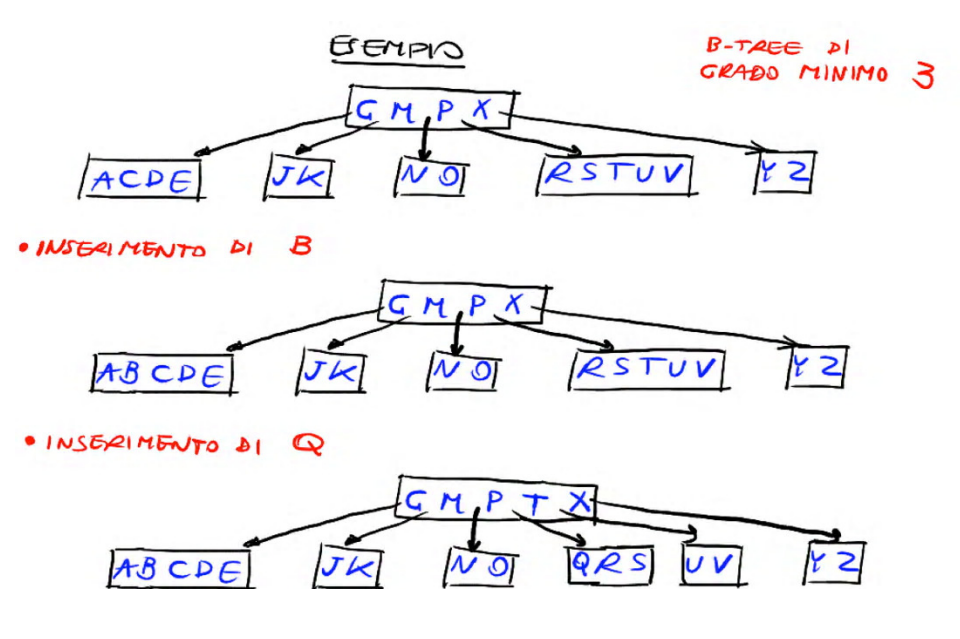 ESEMPIO
B-TREE DI
GRADO MINIMO 3
G M P X
ACDE JK NO RSTUV YZ
• INSERIMENTO DI B
G M P X
ABCDE JK NO RSTUV YZ
• INSERIMENTO DI Q
G M P T X
ABCDE JK NO QRS UV YZ